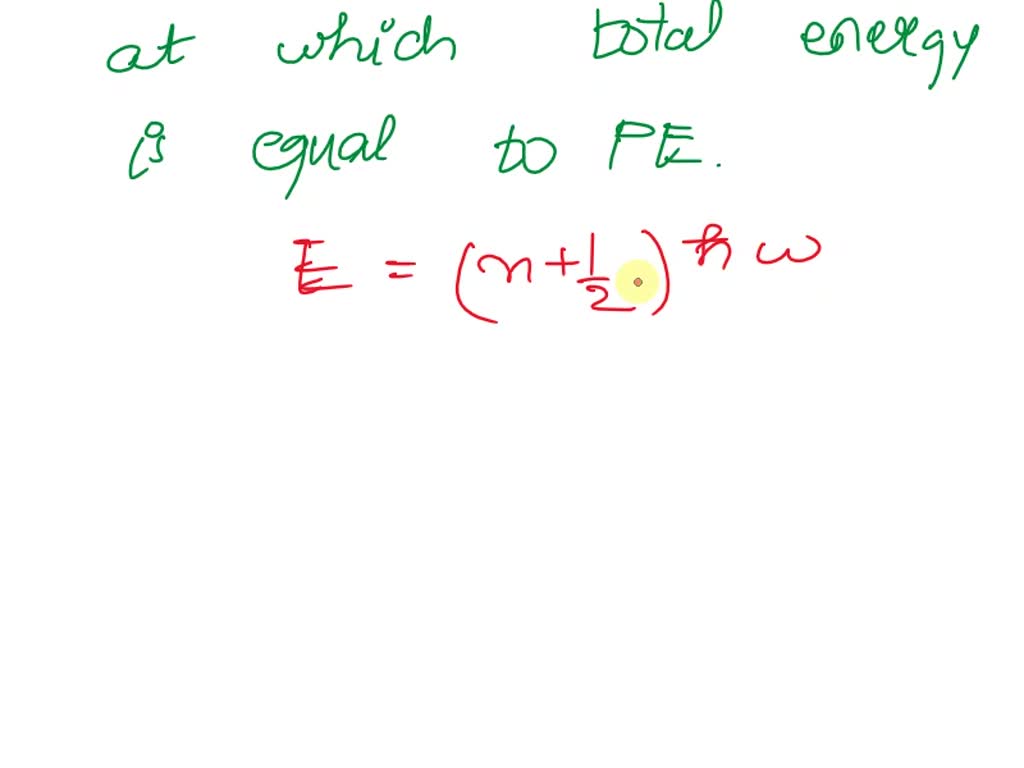 at which total energy
is equal to PE.
E = (n+1/2) ℏ ω